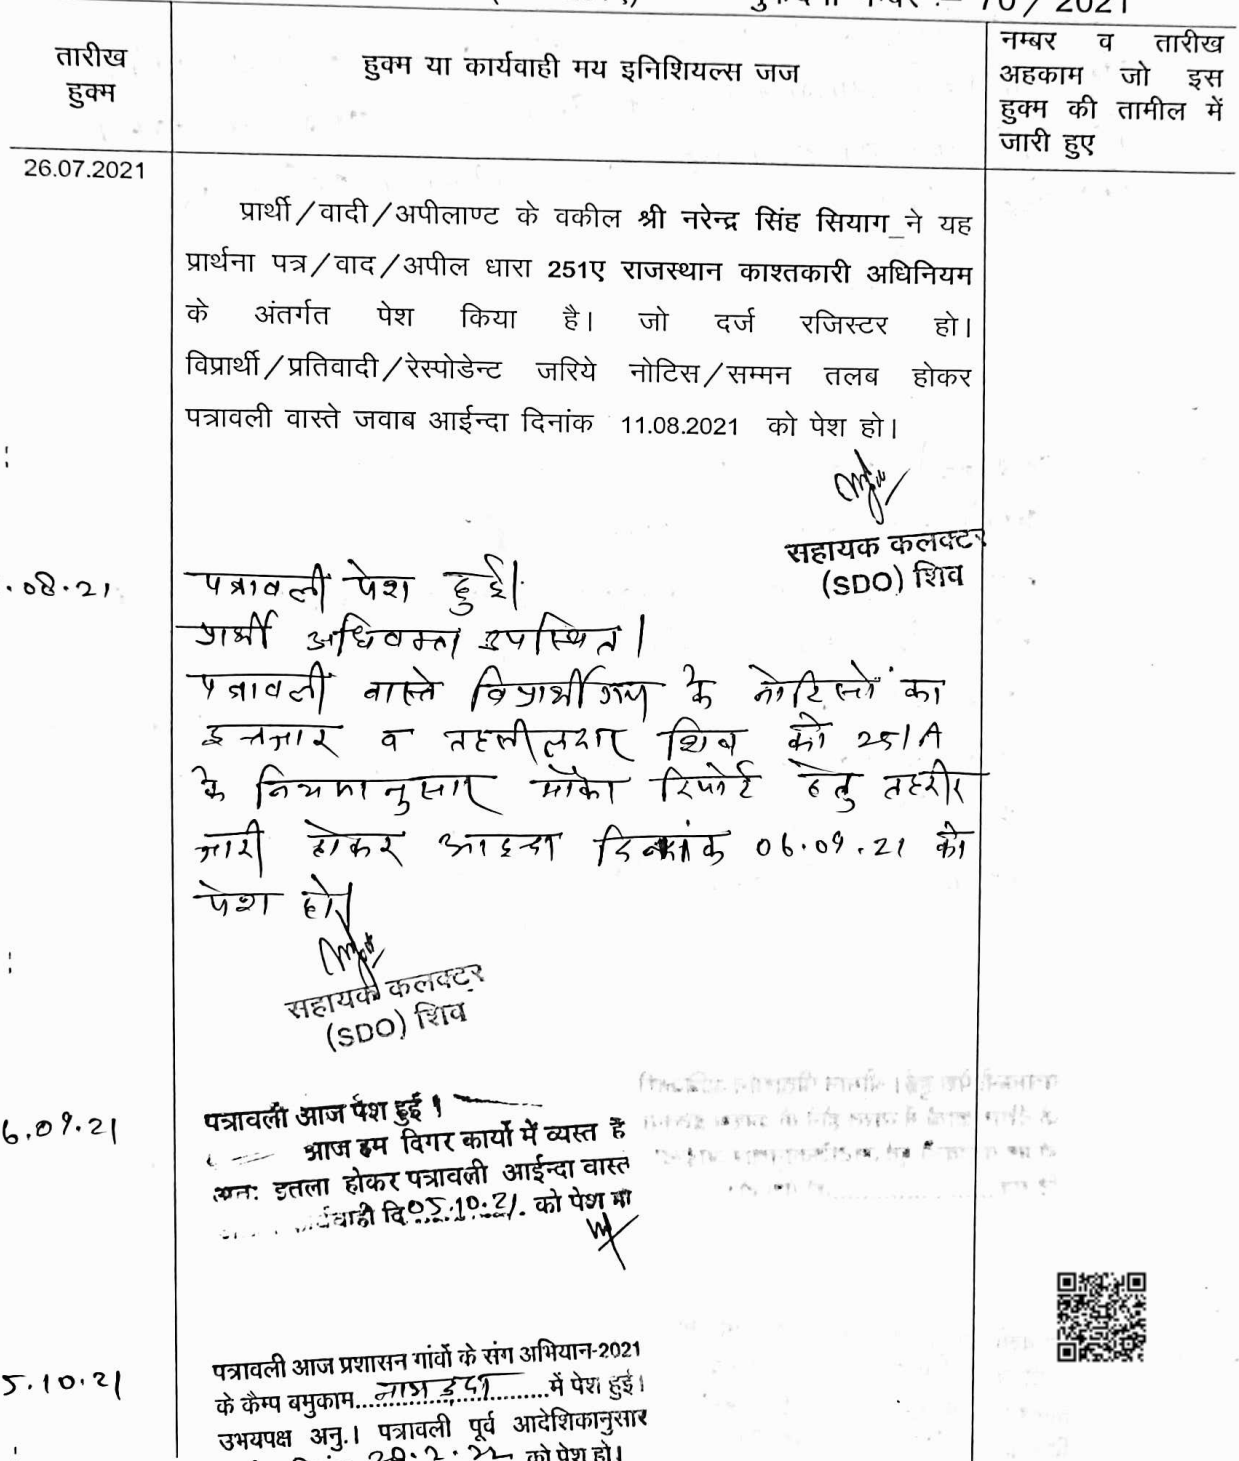 70/2021
तारीख
हुक्म
हुक्म या कार्यवाही मय इनिशियल्स जज
नम्बर व तारीख
अहकाम जो इस
हुक्म की तामील में
जारी हुए
26.07.2021
प्रार्थी/वादी/अपीलाण्ट के वकील श्री नरेन्द्र सिंह सियाग_ने यह
प्रार्थना पत्र/वाद/अपील धारा 251ए राजस्थान काश्तकारी अधिनियम
के अंतर्गत पेश किया है। जो दर्ज रजिस्टर हो।
विप्रार्थी/प्रतिवादी/रेस्पोडेन्ट जरिये नोटिस/सम्मन तलब होकर
पत्रावली वास्ते जवाब आईन्दा दिनांक 11.08.2021 को पेश हो।
सहायक कलक्टर
(SDO) शिव
.08.21
पत्रावली पेश हुई।
प्रार्थी अधिवक्ता उपस्थित।
पत्रावली वास्ते विप्रार्थीगण के नोटिसों का
इन्तजार व तहसीलदार शिव को 251A
के नियमानुसार मौका रिपोर्ट हेतु तहरीर
जारी होकर आइन्दा दिनांक 06.09.21 को
पेश हो।
सहायक कलक्टर
(SDO) शिव
6.09.21
पत्रावली आज पेश हुई।
आज हम विगर कार्यो में व्यस्त है
अत: इतला होकर पत्रावली आईन्दा वास्त
र्यवाही दि 05.10.21. को पेश
5.10.21
पत्रावली आज प्रशासन गांवों के संग अभियान-2021
के कैम्प बमुकाम.................में पेश हुई।
उभयपक्ष अनु.। पत्रावली पूर्व आदेशिकानुसार
को पेश हो।